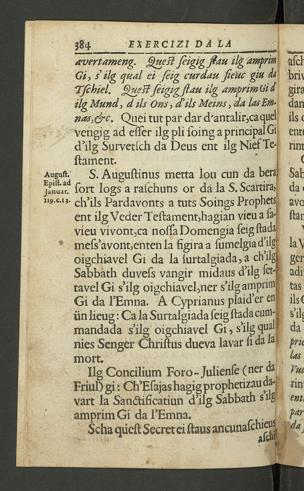 384 EXERCIZI DA LA
avertameng. Quest seigig stau ilg amprim
Gi, s'ilg qual ei seig curdau sieuc giu da
Tschiel. Quest seigig stau ilg amprim Gi d'
ilg Mund, d ils Ons, d'ils Meins, da las Em-
nas, &c. Quei tut par dar d'antalir, ca quel
vengig ad esser ilg pli soing a principal Gi
d'ilg Survetsch da Deus ent ilg Nief Te-
stament.
August.
Epist. ad
Januar.
119.c.13.
S. Augustinus metta lou cun da bera
sort logs a raschuns or da la S. Scartira,
ch'ils Pardavonts a tuts Soings Prophets
ent ilg Veder Testament, hagian vieu a sa-
vieu vivont, ca nossa Domengia seig stada
mess'avont, enten la figira a sumelgia d'ilg
oigchiavel Gi da la surtalgiada, a ch'ilg
Sabbath duvess vangir midaus d'ilg set-
tavel Gi s'ilg oigchiavel, ner s'ilg amprim
Gi da l'Emna. A Cyprianus plaid'er en
ün lieug: Ca la Surtalgiada seig stada cum-
mandada s'ilg oigchiavel Gi, s'ilg qual
nies Senger Christus dueva lavar si da la
mort.
Ilg Concilium Foro-Juliense (ner da
Friul) gi: Ch'Esajas hagig prophetizau da-
vart la Sanctification d'ilg Sabbath s'ilg
amprim Gi da l'Emna.
Scha quest Secret ei staus ancunaschieus